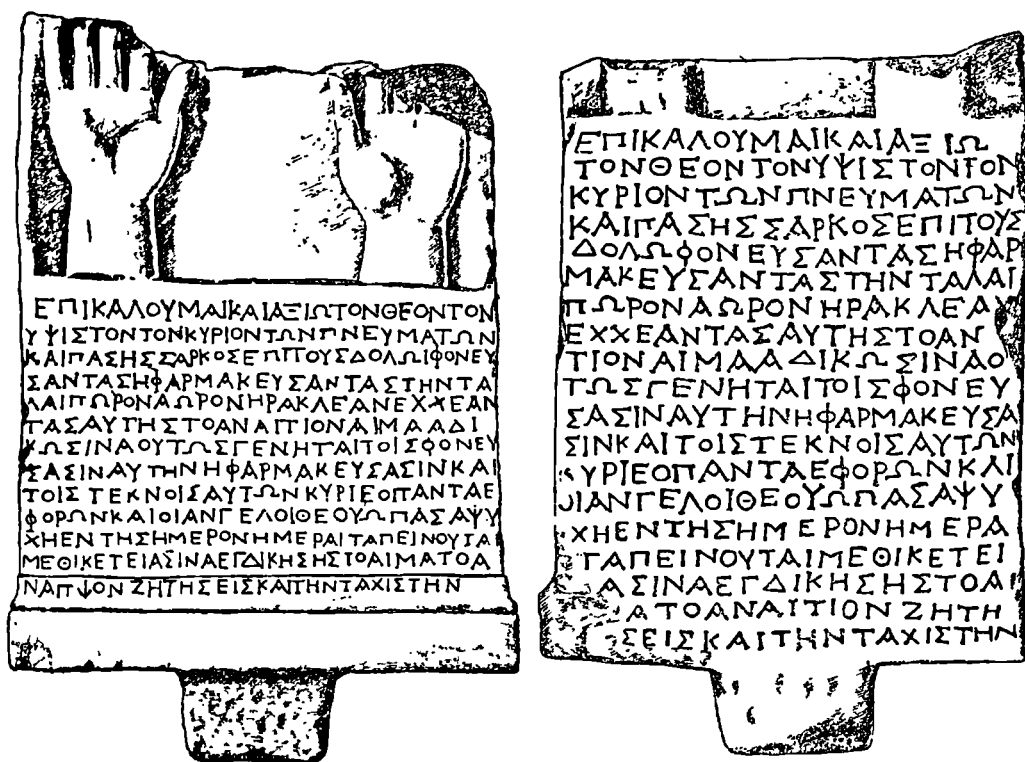 ΕΠΙΚΑΛΟΥΜΑΙΚΑΙΑΞΙΩΤΟΝΘΕΟΝΤΟΝ
ΥΨΙΣΤΟΝΤΟΝΚΥΡΙΟΝΤΩΝΠΝΕΥΜΑΤΩΝ
ΚΑΙΠΑΣΗΣΣΑΡΚΟΣΕΠΙΤΟΥΣΔΟΛΩΙΦΟΝΕΥ
ΣΑΝΤΑΣΗΦΑΡΜΑΚΕΥΣΑΝΤΑΣΤΗΝΤΑ
ΛΑΙΠΩΡΟΝΑΩΡΟΝΗΡΑΚΛΕΑΝΕΧΧΕΑΝ
ΤΑΣΑΥΤΗΣΤΟΑΝΑΙΤΙΟΝΑΙΜΑΑΔΙ
ΚΩΣΙΝΑΟΥΤΩΣΓΕΝΗΤΑΙΤΟΙΣΦΟΝΕΥ
ΣΑΣΙΝΑΥΤΗΝΗΦΑΡΜΑΚΕΥΣΑΣΙΝΚΑΙ
ΤΟΙΣΤΕΚΝΟΙΣΑΥΤΩΝΚΥΡΙΕΟΠΑΝΤΑΕ
ΦΟΡΩΝΚΑΙΟΙΑΝΓΕΛΟΙΘΕΟΥΩΠΑΣΑΨΥ
ΧΗΕΝΤΗΣΗΜΕΡΟΝΗΜΕΡΑΙΤΑΠΕΙΝΟΥΤΑ
ΜΕΘΙΚΕΤΕΙΑΣΙΝΑΕΓΔΙΚΗΣΗΣΤΟΑΙΜΑΤΟΑ
ΝΑΙΤΙΟΝΖΗΤΗΣΕΙΣΚΑΙΤΗΝΤΑΧΙΣΤΗΝ
ΕΠΙΚΑΛΟΥΜΑΙΚΑΙΑΞΙΩ
ΤΟΝΘΕΟΝΤΟΝΥΨΙΣΤΟΝΤΟΝ
ΚΥΡΙΟΝΤΩΝΠΝΕΥΜΑΤΩΝ
ΚΑΙΠΑΣΗΣΣΑΡΚΟΣΕΠΙΤΟΥΣ
ΔΟΛΩΦΟΝΕΥΣΑΝΤΑΣΗΦΑΡ
ΜΑΚΕΥΣΑΝΤΑΣΤΗΝΤΑΛΑΙ
ΠΩΡΟΝΑΩΡΟΝΗΡΑΚΛΕΑΝ
ΕΧΧΕΑΝΤΑΣΑΥΤΗΣΤΟΑΝ
ΤΙΟΝΑΙΜΑΑΔΙΚΩΣΙΝΑΟ
ΤΩΣΓΕΝΗΤΑΙΤΟΙΣΦΟΝΕΥ
ΣΑΣΙΝΑΥΤΗΝΗΦΑΡΜΑΚΕΥΣΑ
ΣΙΝΚΑΙΤΟΙΣΤΕΚΝΟΙΣΑΥΤΩΝ
ΚΥΡΙΕΟΠΑΝΤΑΕΦΟΡΩΝΚΑΙ
ΟΙΑΝΓΕΛΟΙΘΕΟΥΩΠΑΣΑΨΥ
ΧΗΕΝΤΗΣΗΜΕΡΟΝΗΜΕΡΑ
ΤΑΠΕΙΝΟΥΤΑΙΜΕΘΙΚΕΤΕΙ
ΑΣΙΝΑΕΓΔΙΚΗΣΗΣΤΟΑΙ
ΑΤΟΑΝΑΙΤΙΟΝΖΗΤΗ
ΣΕΙΣΚΑΙΤΗΝΤΑΧΙΣΤΗΝ